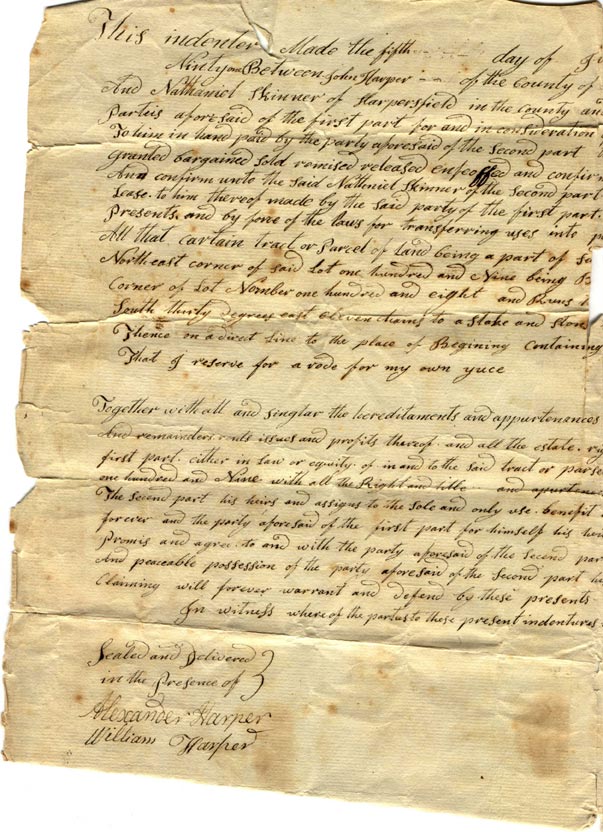 This indenter Made the fifth day of
Ninty one Between John Harper of the County of
And Nathaniel Skinner of Harpersfield in the County an
Parteis aforesaid of the first part for and in consideration
To him in hand paid by the party aforesaid of the Second part
Granted bargained Sold remised released and confirm
And confirm unto the Said Nathniel Skinner of the Second part
Lease to him thereof made by the Said party of the first part.
Presents and by force of the laws for transferring uses into p
All that certain tract or Parcel of Land being a part of
Northeast corner of said Lot one hundred and Nine being
Corner of Lot Nomber one hundred and eight and Runs
South thirty degrees east eleven chains to a Stake and Ston
Thence on a direct Line to the place of Begining Containing
That I reserve for a rode for my own yuce
Together with all and singlar the hereditaments and appurtenances
And remainders rents issues and profits thereof. and all the estate. r
first part. either in Law or equity. of in and to the Said tract or parse
one hundred and Nine with all the Right and title and apurtena
The Second part his heirs and assigns to the Sole and only use. benefit
forever and the party aforesaid of the first part for himself his
Promis and agree to and with the party aforesaid of the Second par
And peaceable possession of the party aforesaid of the Second part he
Claiming will forever warrant and defend by these presents
In witness where of the parties to these present indentures
Sealed and Delivered
in the Presence of
Alexander Harper
William Harper